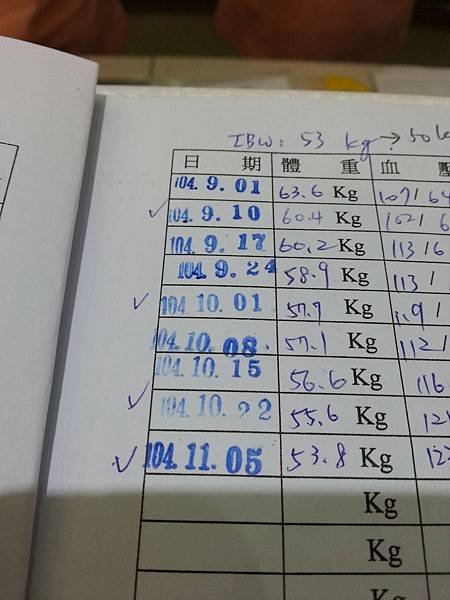 IBW: 53 kg → 50 k
日 期 體 重 血 壓
104. 9. 01 63.6 Kg 107/ 64
104. 9. 10 60.4 Kg 102/ 6
104. 9. 17 60.2 Kg 113/ 6
104. 9. 24 58.9 Kg 113/
104. 10. 01 57.9 Kg 119/
104. 10. 08. 57.1 Kg 112/
104. 10. 15 56.6 Kg 116
104. 10. 22 55.6 Kg
104. 11. 05 53.8 Kg
Kg
Kg
Kg